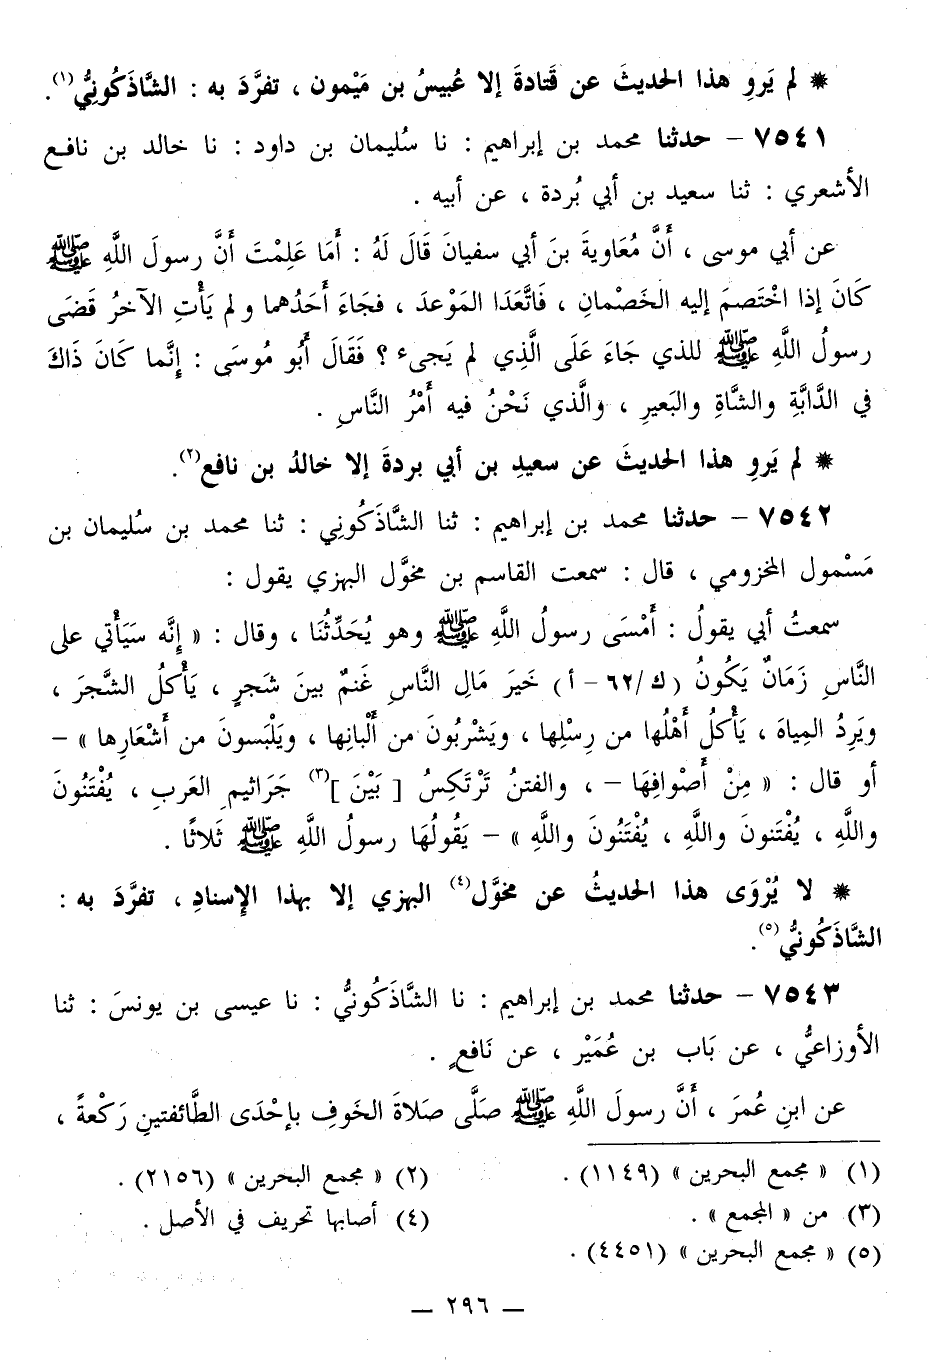 * لم يَروِ هذا الحديثَ عن قَتادةَ إلا عُبيسُ بن مَيْمون ، تفرَّدَ به : الشَّاذَكُونِيُّ(١).
٧٥٤١ – حدثنا محمد بن إبراهيم : نا سُليمان بن داود : نا خالد بن نافع
الأشعري : ثنا سعيد بن أبي بُردة ، عن أبيه .
عن أبي موسى ، أَنَّ مُعَاويةَ بنَ أبي سفيانَ قَالَ لَهُ : أَمَا عَلِمْتَ أَنَّ رسولَ اللَّهِ ﷺ
كَانَ إذا اخْتَصمَ إليه الخَصْمانِ ، فَاتَّعَدَا المَوْعدَ ، فجَاءَ أَحَدُهما و لم يَأْتِ الآخرُ قَضَى
رسولُ اللَّهِ ﷺ للذي جَاءَ عَلَى الَّذِي لم يَجىء ؟ فَقَالَ أَبُو مُوسَى : إِنَّما كَانَ ذَاكَ
في الدَّابَّةِ والشَّاةِ والبَعيرِ ، والَّذي نَحْنُ فيه أَمْرُ النَّاسِ .
* لم يَروِ هذا الحديثَ عن سعيدِ بن أبي بردةَ إلا خالدُ بن نافع(٢).
٧٥٤٢ – حدثنا محمد بن إبراهيم : ثنا الشَّاذَكُونِي : ثنا محمد بن سُليمان بن
مَسْمول المخزومي ، قال : سمعت القاسم بن مخوَّل البهزي يقول :
سمعتُ أبي يقولُ : أَمْسَى رسولُ اللَّهِ ﷺ وهو يُحَدِّثُنَا ، وقال : « إِنَّه سَيَأْتي على
النَّاسِ زَمَانٌ يَكُونُ (ك/٦٢ – أ) خَيرَ مَالِ النَّاسِ غَنمٌ بينَ شَجرٍ ، يَأْكلُ الشَّجرَ ،
ويَرِدُ المِياهَ ، يَأْكلُ أَهْلُها من رِسْلِها ، ويَشْربُونَ من أَلْبانِها ، ويَلْبَسونَ من أَشْعَارِها » –
أو قال : « مِنْ أَصْوافِهَا – ، والفتنُ تَرْتَكِسُ [ بَيْنَ ](٣) جَرَاثيمِ العَربِ ، يُفْتَنُونَ
واللَّهِ ، يُفْتَنونَ واللَّهِ ، يُفْتَنُونَ واللَّهِ » – يَقُولُهَا رسولُ اللَّهِ ﷺ ثَلاثًا .
* لا يُرْوَى هذا الحديثُ عن مخوَّل(٤) البهزي إلا بهذا الإسنادِ ، تفرَّدَ به :
الشَّاذَكُونيُّ(٥).
٧٥٤٣ – حدثنا محمد بن إبراهيم : نا الشَّاذَكُونيُّ : نا عيسى بن يونسَ : ثنا
الأوزاعيُّ ، عن بَاب بن عُمَيْر ، عن نَافعٍ .
عن ابنِ عُمرَ ، أَنَّ رسولَ اللَّهِ ﷺ صَلَّى صَلاةَ الخَوفِ بإحْدَى الطَّائفتينِ رَكْعةً ،
(١) « مجمع البحرين » (١١٤٩) .
(٢) « مجمع البحرين » (٢١٥٦) .
(٣) من « المجمع » .
(٤) أصابها تحريف في الأصل .
(٥) « مجمع البحرين » (٤٤٥١) .
– ٢٩٦ –